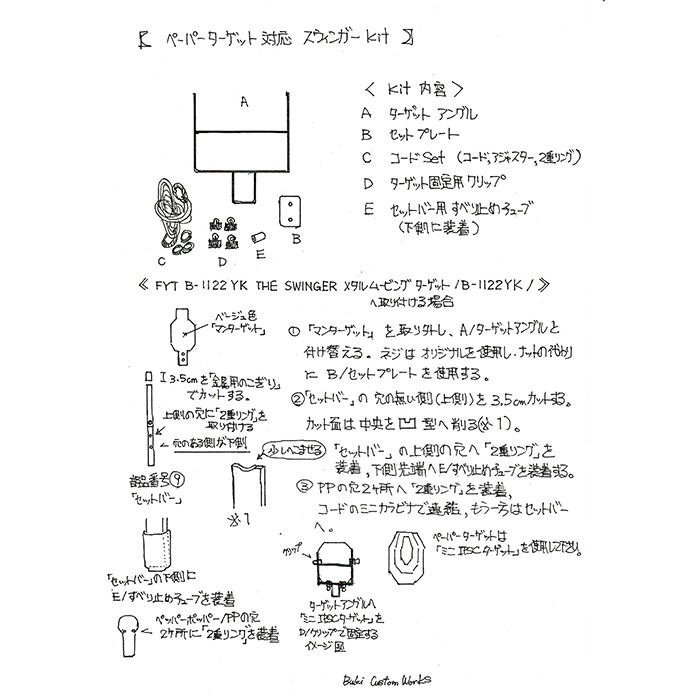 【 ペーパーターゲット対応 スウィンガー Kit 】
A
C
D
E
B
〈 Kit 内容 〉
A ターゲット アングル
B セットプレート
C コードSet (コード,アジャスター,2重リング)
D ターゲット固定用クリップ
E セットバー用すべり止めチューブ
(下側に装着)
《 FYT B-1122YK THE SWINGER メタルムービングターゲット/B-1122YK/》
へ取り付ける場合
ベージュ色
「マンターゲット」
3.5cmを「金属用のこぎり」
でカットする。
上側の穴に「2重リング」を
取り付ける
穴のある側が下側
部品番号⑨
「セットバー」
少しへこませる
※1
① 「マンターゲット」を取り外し、A/ターゲットアングルと
付け替える。ネジはオリジナルを使用し、ナットの代わり
にB/セットプレートを使用する。
②「セットバー」の穴の無い側(上側)を3.5cmカットする。
カット面は中央を凹型へ削る(※1)。
「セットバー」の上側の穴へ「2重リング」を
装着,下側先端へE/すべり止めチューブを装着する。
③ PPの穴2ヶ所へ「2重リング」を装着,
コードのミニカラビナで連結,もう一方はセットバー
へ。
「セットバー」の下側に
E/すべり止めチューブを装着
ペッパーポッパー/PPの穴
2ヶ所に「2重リング」を装着
クリップ
ターゲットアングルへ
「ミニIPSCターゲット」を
D/クリップで固定する
イメージ図
ペーパーターゲットは
「ミニIPSCターゲット」を使用して下さい。
Buki Custom Works